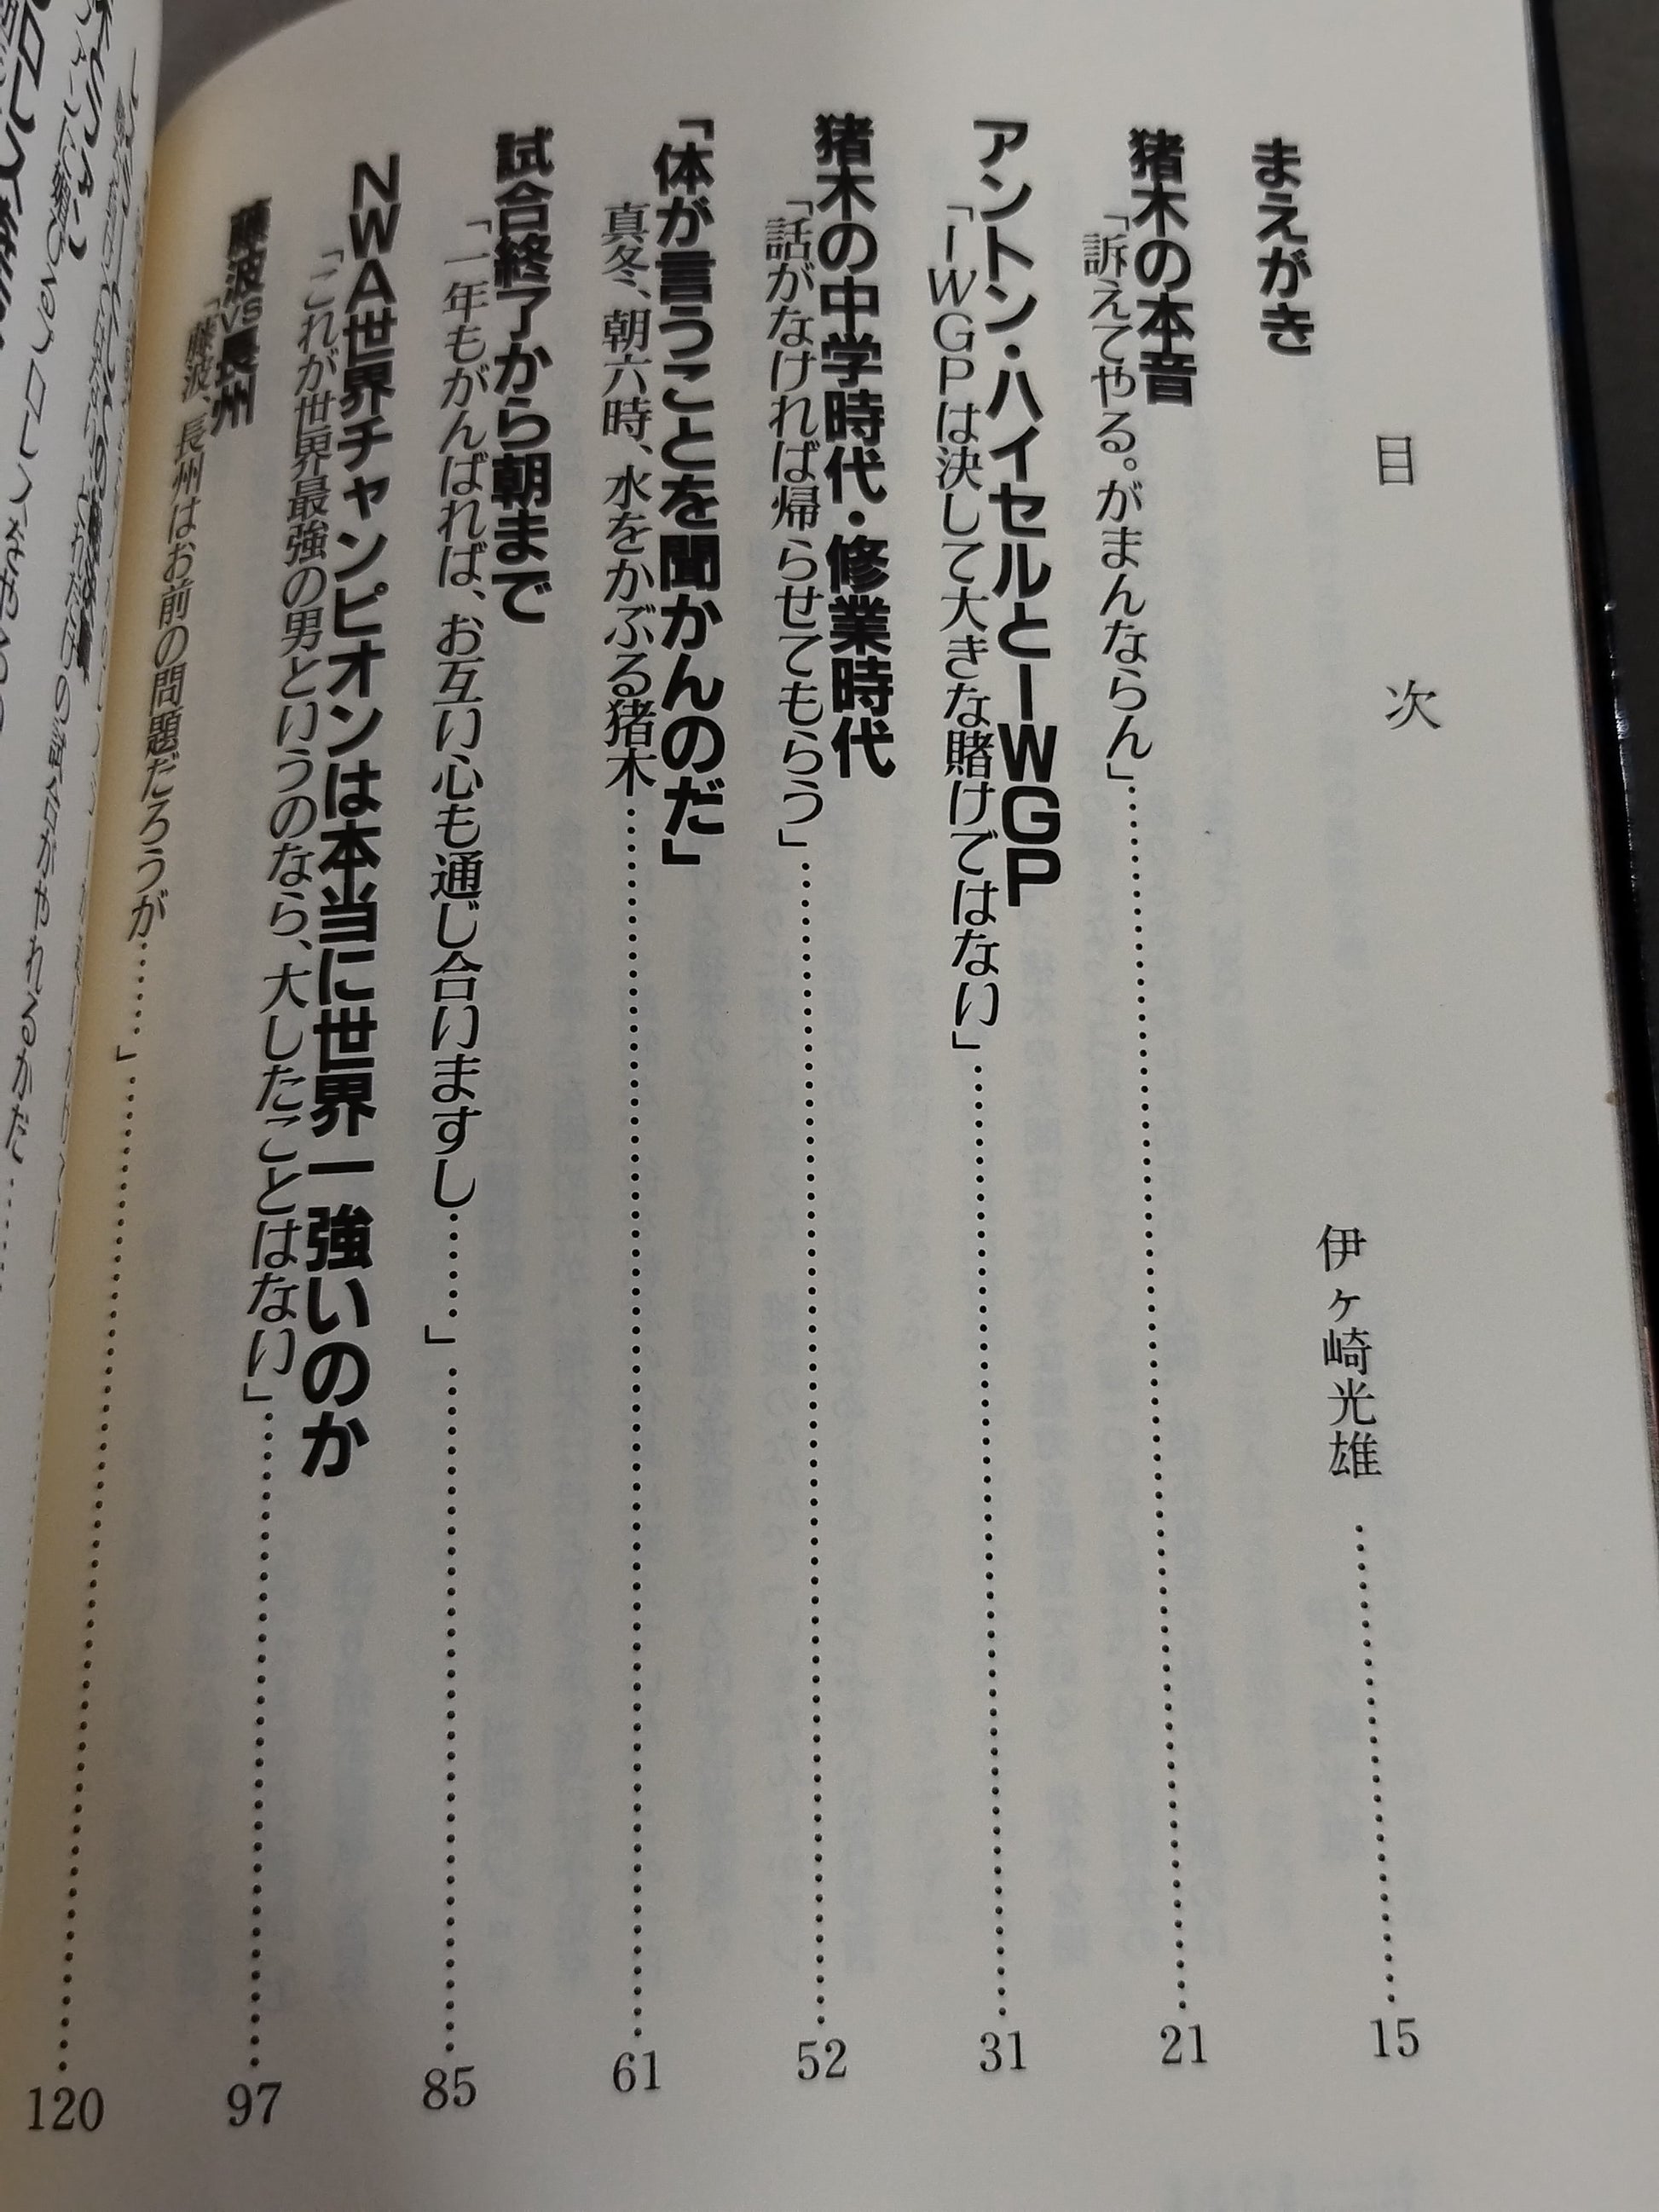 目次
まえがき
伊ヶ崎光雄……………………15
猪木の本音
「訴えてやる。がまんならん」……………………21
アントン・ハイセルとIWGP
「IWGPは決して大きな賭けではない」……………………31
猪木の中学時代・修業時代
「話がなければ帰らせてもらう」……………………52
「体が言うことを聞かんのだ」
真冬、朝六時、水をかぶる猪木……………………61
試合終了から朝まで
「一年もがんばれば、お互い心も通じ合いますし……」……………………85
NWA世界チャンピオンは本当に世界一強いのか
「これが世界最強の男というのなら、大したことはない」……………………97
藤波vs長州
「藤波、長州はお前の問題だろうが……」……………………120